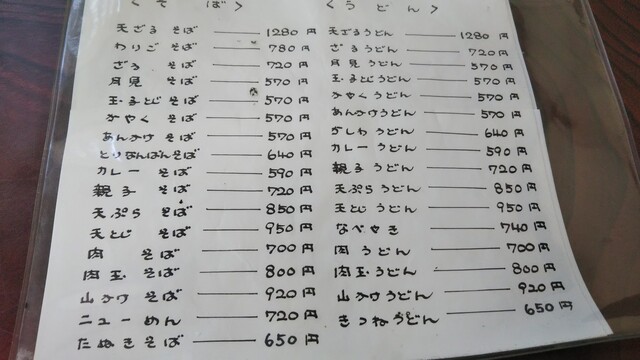 〈そば〉
天ざるそば 1280円
わりごそば 780円
ざるそば 720円
月見そば 570円
玉子とじそば 570円
かやくそば 570円
あんかけそば 570円
とりなんばんそば 640円
カレーそば 590円
親子そば 720円
天ぷらそば 850円
天とじそば 950円
肉そば 700円
肉玉そば 800円
山かけそば 920円
ニューめん 720円
たぬきそば 650円
〈うどん〉
天ざるうどん 1280円
ざるうどん 720円
月見うどん 570円
玉子とじうどん 570円
かやくうどん 570円
あんかけうどん 570円
かしわうどん 640円
カレーうどん 590円
親子うどん 720円
天ぷらうどん 850円
天とじうどん 950円
なべやき 740円
肉うどん 700円
肉玉うどん 800円
山かけうどん 920円
きつねうどん 650円